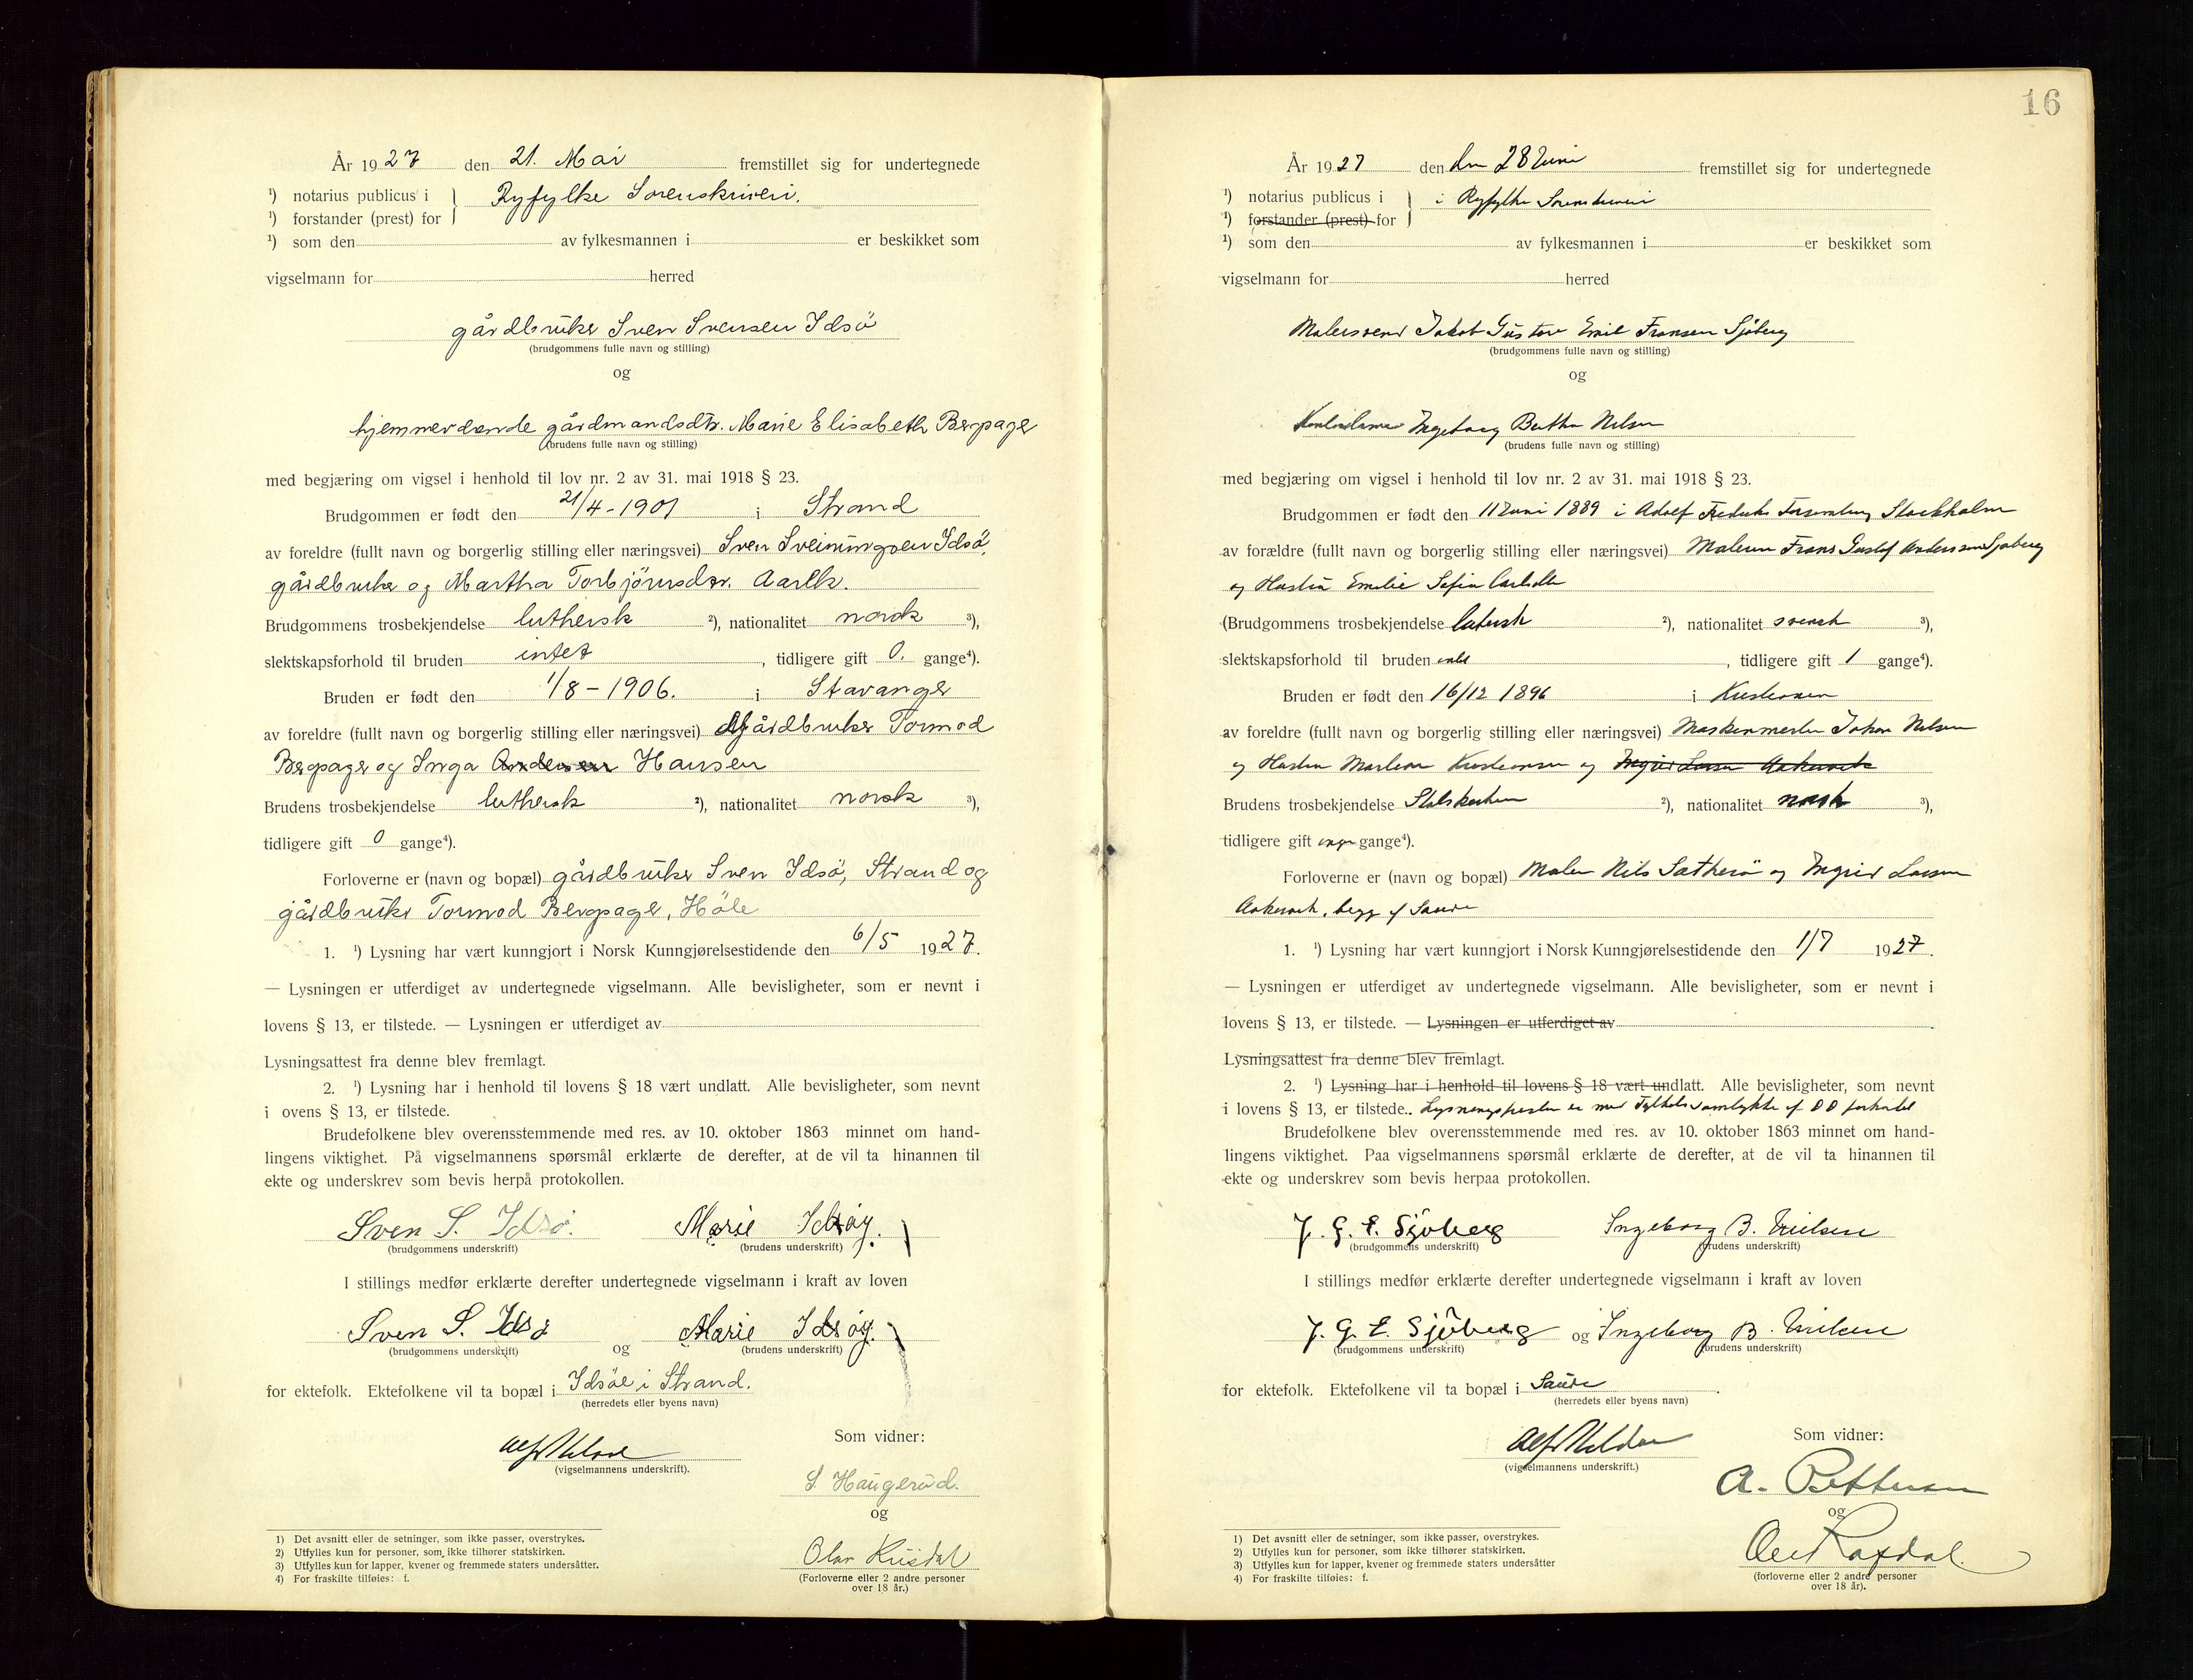 År 1927 den 21. Mai fremstillet sig for undertegnede
¹) notarius publicus i } Ryfylke Sorenskriveri.
¹) forstander (prest) for
¹) som den av fylkesmannen i er beskikket som
vigselmann for herred
gårdbruker Sven Svensen Idsö
(brudgommens fulle navn og stilling)
og
hjemmeværende gårdmandsdtr. Marie Elisabeth Bergsager
(brudens fulle navn og stilling)
med begjæring om vigsel i henhold til lov nr. 2 av 31. mai 1918 § 23.
Brudgommen er født den 21/4-1901 i Strand
av foreldre (fullt navn og borgerlig stilling eller næringsvei) Sven Sveinungsen Idsö,
gårdbruker og Martha Torbjörnsdtr.
Brudgommens trosbekjendelse luthersk ²), nationalitet norsk ³),
slektskapsforhold til bruden intet, tidligere gift 0. gange⁴).
Bruden er født den 1/8-1906. i Stavanger
av foreldre (fullt navn og borgerlig stilling eller næringsvei) Gårdbruker Tormod
Bergsager og Inga Andersen Hansen
Brudens trosbekjendelse luthersk ²), nationalitet norsk ³),
tidligere gift 0 gange⁴).
Forloverne er (navn og bopæl) gårdbruker Sven Idsö, Strand og
gårdbruker Tormod Bergsager, Höle
1. ¹) Lysning har vært kunngjort i Norsk Kunngjørelsestidende den 6/5 1927.
— Lysningen er utferdiget av undertegnede vigselmann. Alle bevisligheter, som er nevnt i
lovens § 13, er tilstede. — Lysningen er utferdiget av
Lysningsattest fra denne blev fremlagt.
2. ¹) Lysning har i henhold til lovens § 18 vært undlatt. Alle bevisligheter, som nevnt
i ovens § 13, er tilstede.
Brudefolkene blev overensstemmende med res. av 10. oktober 1863 minnet om hand-
lingens viktighet. På vigselmannens spørsmål erklærte de derefter, at de vil ta hinannen til
ekte og underskrev som bevis herpå protokollen.
Sven S. Idsö. Marie Idsöy.
(brudgommens underskrift) (brudens underskrift)
I stillings medfør erklærte derefter undertegnede vigselmann i kraft av loven
Sven S. Idsö og Marie Idsöy.
(brudgommens underskrift) (brudens underskrift)
for ektefolk. Ektefolkene vil ta bopæl i Idsöe i Strand.
(herredets eller byens navn)
(vigselmannens underskrift).
Som vidner:
S. Haugerud.
og
Olav
(Forloverne eller 2 andre personer
over 18 år.)
1) Det avsnitt eller de setninger, som ikke passer, overstrykes.
2) Utfylles kun for personer, som ikke tilhører statskirken.
3) Utfylles kun for lapper, kvener og fremmede staters undersåtter.
4) For fraskilte tilføies: f.
16
År 1927 den den 28 Juni fremstillet sig for undertegnede
¹) notarius publicus i } i Ryfylke Sorenskriveri
¹) forstander (prest) for
¹) som den av fylkesmannen i er beskikket som
vigselmann for herred
Malersvend Jakob Gustav Emil Fransen Sjöberg
(brudgommens fulle navn og stilling)
og
Ingeborg Berthe Nilsen
(brudens fulle navn og stilling)
med begjæring om vigsel i henhold til lov nr. 2 av 31. mai 1918 § 23.
Brudgommen er født den 11 Juni 1889 i Adolf Fredriks Forsamling Stockholm
av forældre (fullt navn og borgerlig stilling eller næringsvei) Maleren Frans Gustaf Andersson Sjöberg
og Hustru Emilie Sofia
(Brudgommens trosbekjendelse lutersk ²), nationalitet svensk ³),
slektskapsforhold til bruden intet, tidligere gift 1 gange⁴).
Bruden er født den 16/12 1896 i Kristiania
av foreldre (fullt navn og borgerlig stilling eller næringsvei) Maskinmester Johan Nilsen
og Hustru Kristiansen og Ingrid Larsen
Brudens trosbekjendelse Statskirken ²), nationalitet norsk ³),
tidligere gift ingen gange⁴).
Forloverne er (navn og bopæl) Maler Nils og Ingrid Larsen
begge af Saude
1. ¹) Lysning har vært kunngjort i Norsk Kunngjørelsestidende den 1/7 1927.
— Lysningen er utferdiget av undertegnede vigselmann. Alle bevisligheter, som er nevnt i
lovens § 13, er tilstede. — Lysningen er utferdiget av
Lysningsattest fra denne blev fremlagt.
2. ¹) Lysning har i henhold til lovens § 18 vært undlatt. Alle bevisligheter, som nevnt
i lovens § 13, er tilstede. Lysningsfristen er med Fylkets samtykke af DD forkortet
Brudefolkene blev overensstemmende med res. av 10. oktober 1863 minnet om hand-
lingens viktighet. Paa vigselmannens spørsmål erklærte de derefter, at de vil ta hinannen til
ekte og underskrev som bevis herpaa protokollen.
J. G. E. Sjöberg Ingeborg B. Nielsen
(brudgommens underskrift) (brudens underskrift)
I stillings medfør erklærte derefter undertegnede vigselmann i kraft av loven
J. G. E. Sjöberg og Ingeborg B. Nielsen
(brudgommens underskrift) (brudens underskrift)
for ektefolk. Ektefolkene vil ta bopæl i Saude.
(herredets eller byens navn)
(vigselmannens underskrift.)
Som vidner:
A. Pettersen
og
(forloverne eller 2 andre personer
over 18 år).
1) Det avsnitt eller de setninger, som ikke passer, overstrykes.
2) Utfylles kun for personer, som ikke tilhører statskirken.
3) Utfylles kun for lapper, kvener og fremmede staters undersåtter
4) For fraskilte tilføies: f.